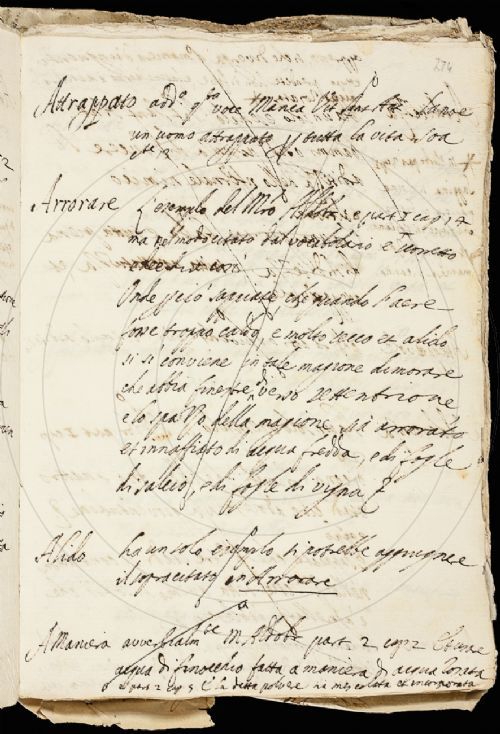 234
Attrappato add.o q.a voce Manca
un uomo attrappato tutta la vita sua
Arrorare L'esempio del M.ro Aldob. e part 2 cap
ma nel modo citato dal vocabolario è scorretto
e dee dire così
Onde però sacciate, che quando l'aere
fosse troppo caldo, e molto secco et alido
si si conviene in tale magione dimorare
che abbia finestre verso settentrione,
e lo spazzo della magione sia arrorato
et innaffiato di acqua fredda, e di foglie
di salcio, e di foglie di vigna
Alido ha un solo esempio si potrebbe aggiugnere
il sopracitato in Arrorare
A Maniera avverbialm.te M. Aldob. part. 2 cap 2
acqua di finocchio fatta a maniera di acqua
e part 2 cap 5 E la detta polvere sia mescolata et incorporata